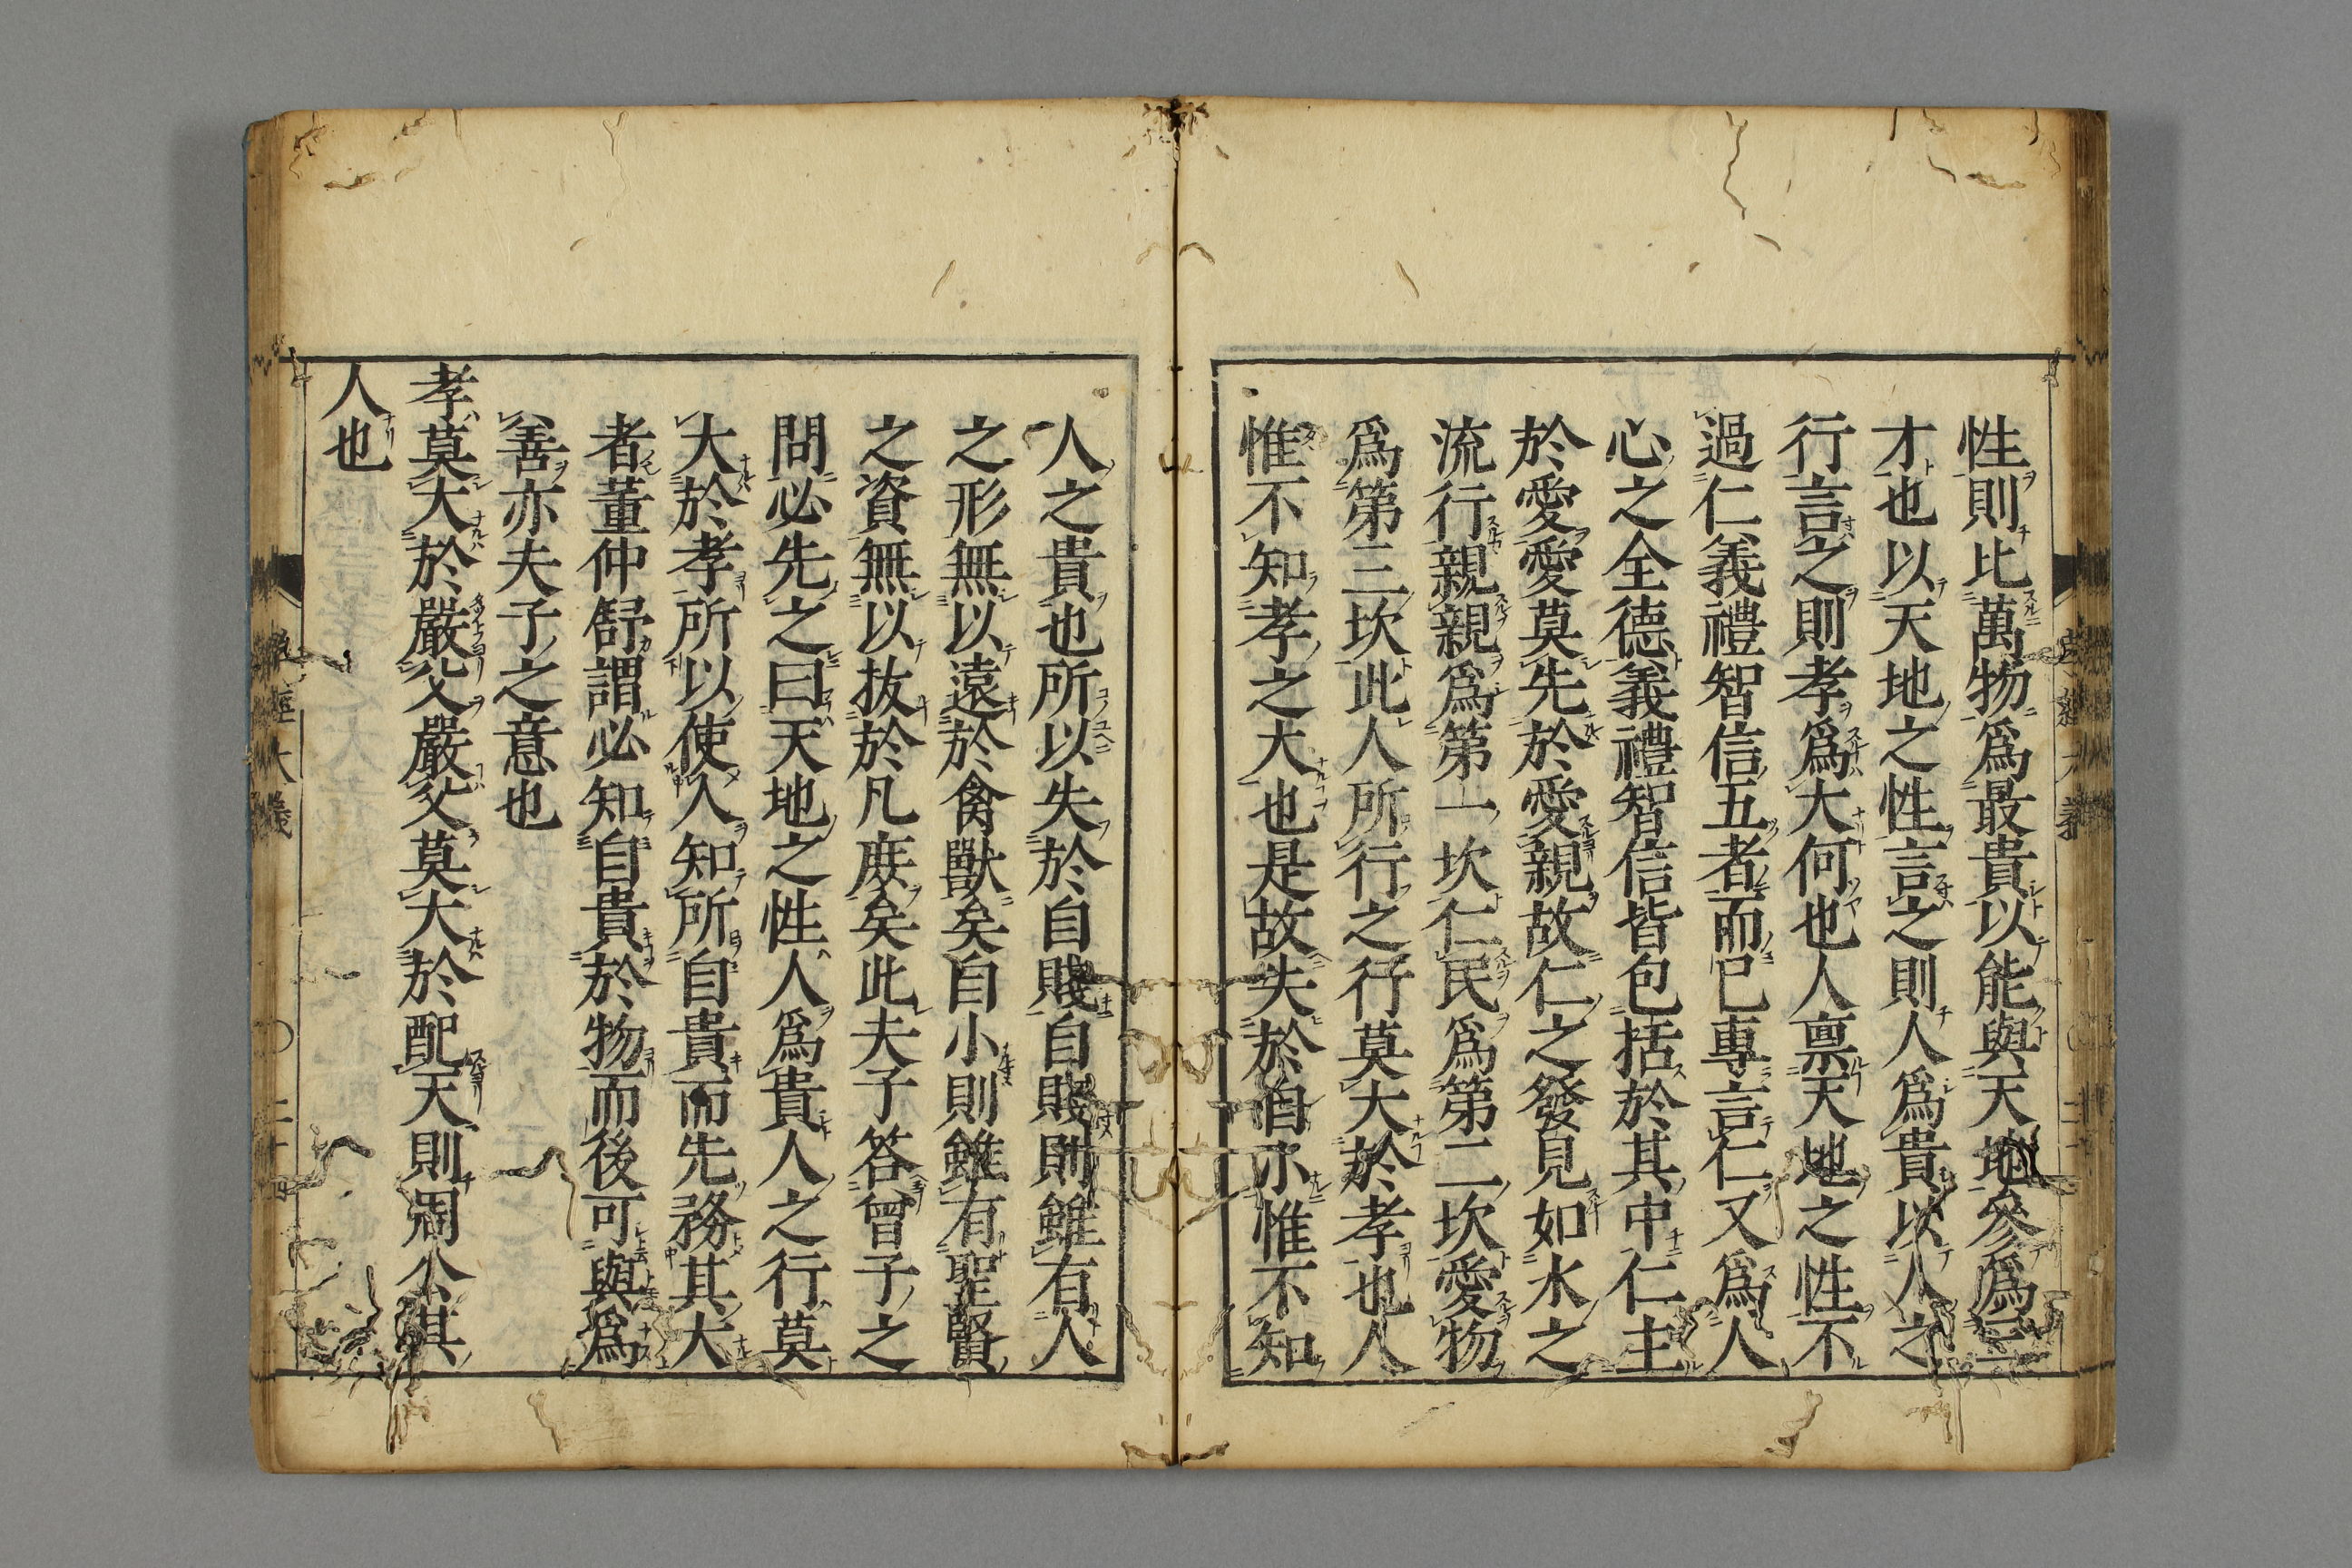 性則比萬物爲最貴以能與天地參爲三
才也以天地之性言之則人爲貴以人之
行言之則孝爲大何也人禀天地之性不
過仁義禮智信五者而已專言仁又爲人
心之全德義禮智信皆包括於其中仁主
於愛愛莫先於愛親故仁之發見如水之
流行親親爲第一坎仁民爲第二坎愛物
爲第三坎此人所行之行莫大於孝也人
惟不知孝之大也是故失於自小惟不知
人之貴也所以失於自賤自賤則雖有人
之形無以遠於禽獸矣自小則雖有聖賢
之資無以拔於凡庶矣此夫子答曾子之
問必先之曰天地之性人爲貴人之行莫
大於孝所以使人知所自貴而先務其大
者董仲舒謂必知自貴於物而後可與爲
善亦夫子之意也
孝莫大於嚴父嚴父莫大於配天則周公其
人也